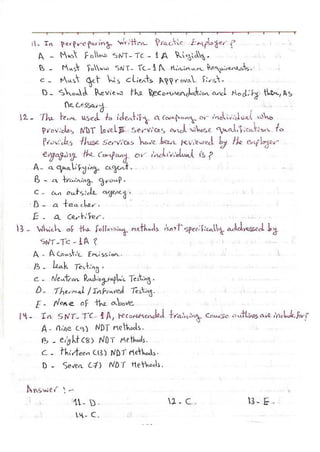 11. In perpreparing written Practic Employer?
A - Must Follow SNT-TC-1A Rigidly.
B - Must Follow SNT-TC-1A Minimum Requirements.
C - Must get his clients Approval First.
D - Should Review the Recommendation and Modify them, AS
necessary
12 - The term used to identify a company or individual who
Provides NDT level III services and whose qualification to
Provides these services have been reviewed by the employer
engaging the company or individual is?
A - a qualifying agent.
B - a training group.
C - an outside agency.
D - a teacher.
E - a Certifer.
13 - Which of the following methods isn't specifically addressed by
SNT-TC-1A?
A - Acoustic Emission.
B - Leak Testing.
C - Neutron Radiographic Testing.
D - Thermal/Infrared Testing.
E - None of the above
14 - In SNT-TC 1A, recommended training course outlines are include for?
A - nine (9) NDT Methods.
B - eight (8) NDT Methods.
C - thirteen (13) NDT Methods.
D - Seven (7) NDT Methods.
Answer :-
11 - D. 12 - C. 13 - E.
14 - C.